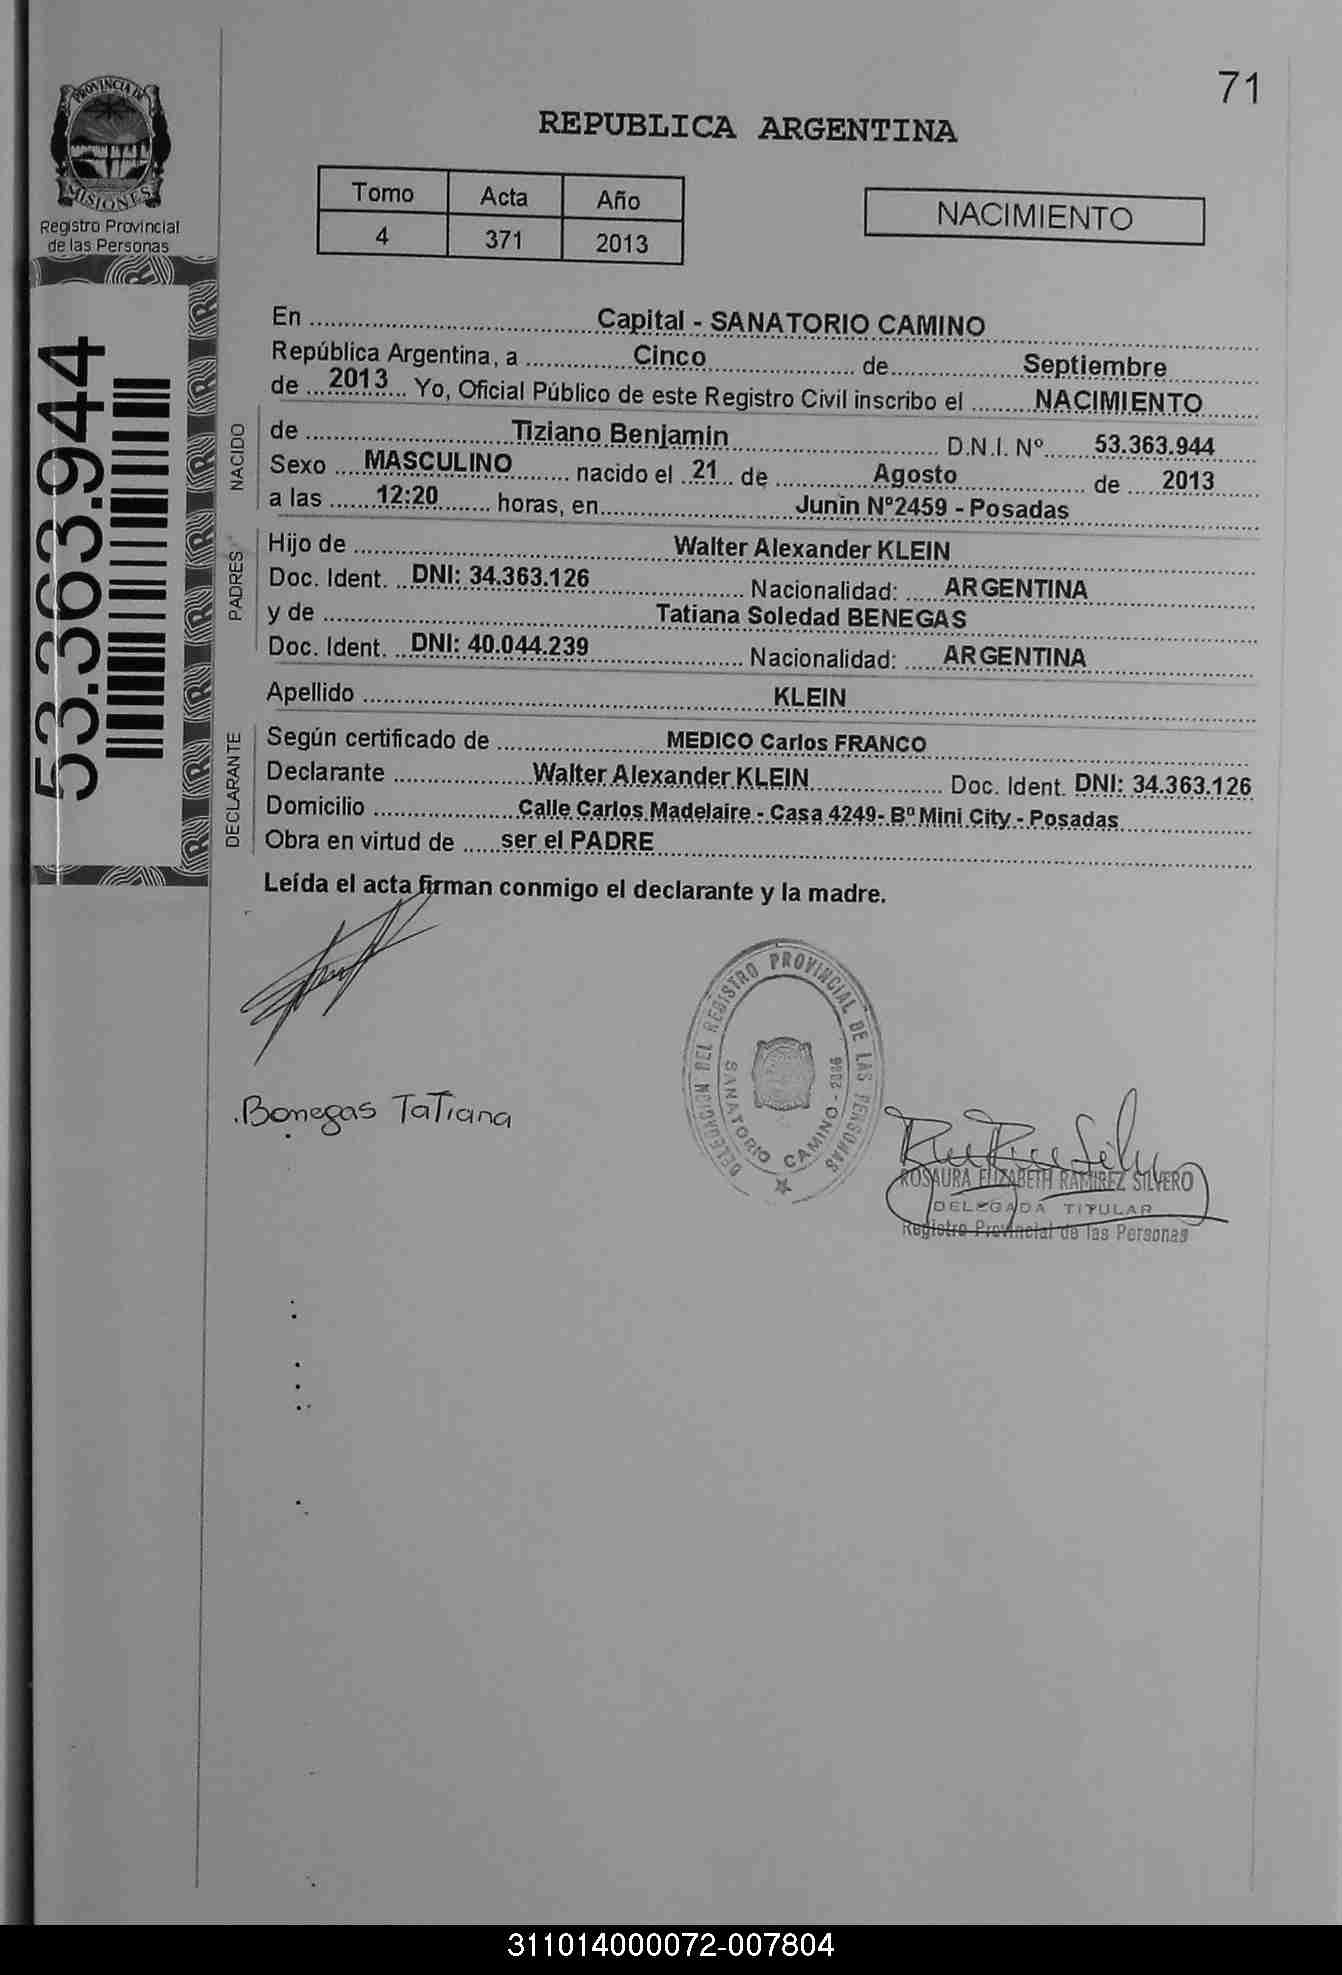 71
PROVINCIA DE
MISIONES
Registro Provincial
de las Personas
53.363.944
REPUBLICA ARGENTINA
Tomo Acta Año
4 371 2013
NACIMIENTO
En Capital - SANATORIO CAMINO
República Argentina, a Cinco de Septiembre
de 2013 Yo, Oficial Público de este Registro Civil inscribo el NACIMIENTO
NACIDO
de Tiziano Benjamin D.N.I. Nº 53.363.944
Sexo MASCULINO nacido el 21 de Agosto de 2013
a las 12:20 horas, en Junin Nº2459 - Posadas
PADRES
Hijo de Walter Alexander KLEIN
Doc. Ident. DNI: 34.363.126 Nacionalidad: ARGENTINA
y de Tatiana Soledad BENEGAS
Doc. Ident. DNI: 40.044.239 Nacionalidad: ARGENTINA
Apellido KLEIN
DECLARANTE
Según certificado de MEDICO Carlos FRANCO
Declarante Walter Alexander KLEIN Doc. Ident. DNI: 34.363.126
Domicilio Calle Carlos Madelaire - Casa 4249- Bº Mini City - Posadas
Obra en virtud de ser el PADRE
Leída el acta firman conmigo el declarante y la madre.
DELEGACION DEL REGISTRO PROVINCIAL DE LAS PERSONAS
SANATORIO CAMINO - 2086
Benegas Tatiana
ROSAURA ELIZABETH RAMIREZ SILVERO
DELEGADA TITULAR
Registro Provincial de las Personas
311014000072-007804